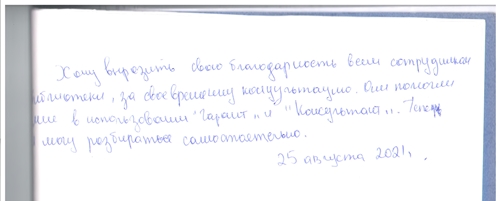 Хочу выразить свою благодарность всем сотрудникам
библиотеки, за своевременную консультацию. Они помогли
мне в использовании "Гарант" и "Консультант". Теперь
я могу разбираться самостоятельно.
25 августа 2021.